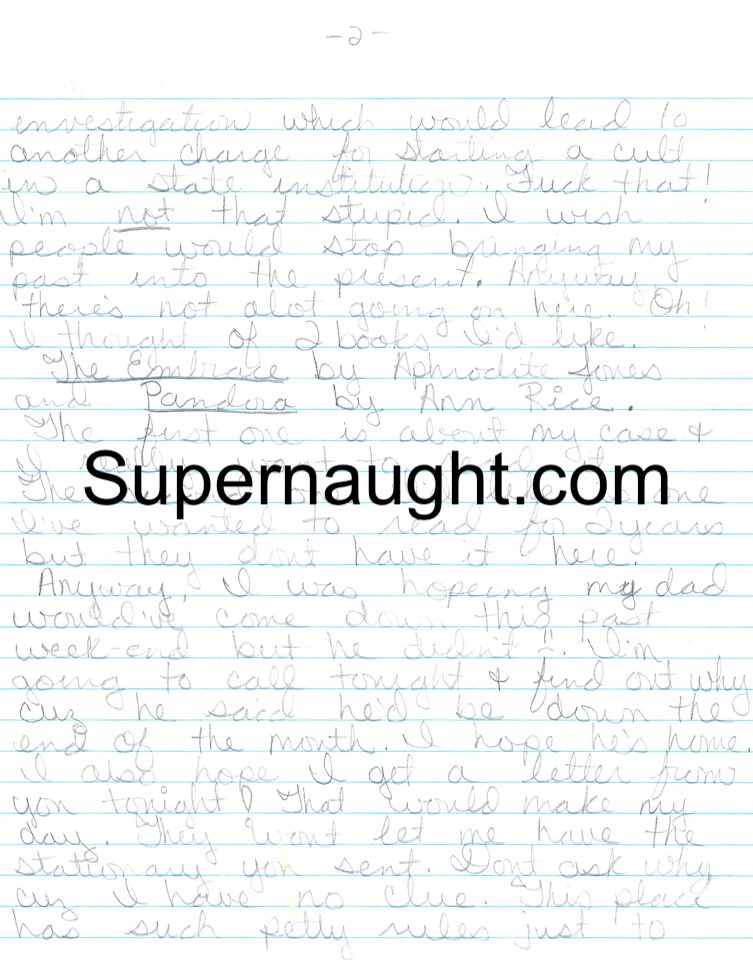 -2-
envestigation which would lead to
another charge for starting a cult
in a state institution. Fuck that!
I'm not that stupid. I wish
people would stop bringing my
past into the present. Anyway
there's not alot going on here. Oh!
I thought of 2 books I'd like.
The Embrace by Aphrodite Jones
and Pandora by Ann Rice.
The first one is about my case &
I really want to read it.
Supernaught.com
The one
I've wanted to read for 2 years
but they dont have it here.
Anyway, I was hopeing my dad
would've come down this past
week-end but he didn't. I'm
going to call tonight & find out why
cuz he said he'd be down the
end of the month. I hope he's home.
I also hope I get a letter from
you tonight! That would make my
day. They won't let me have the
stationary you sent. Dont ask why
cuz I have no clue. This place
has such petty rules just to